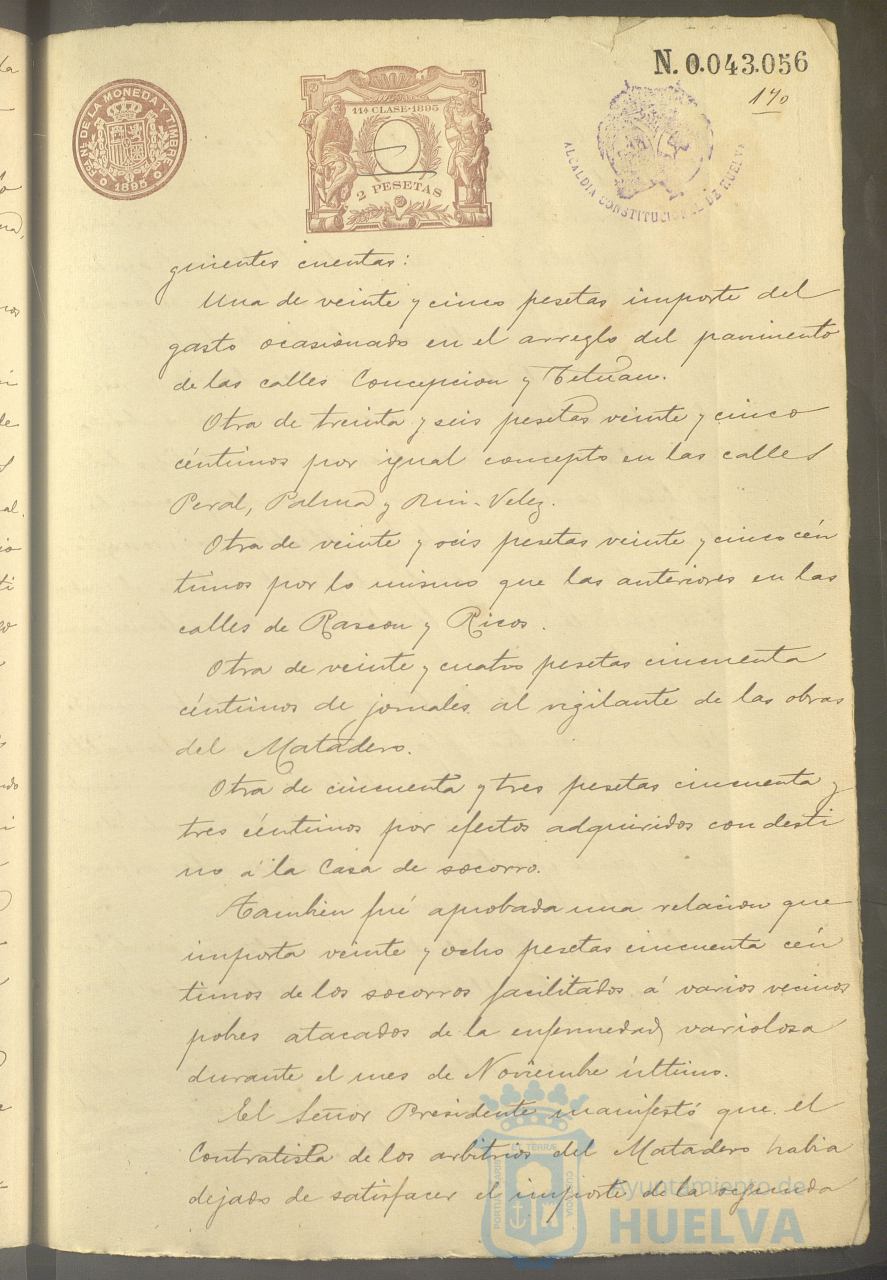 N. 0.043.056
170
FÁB. NAL. DE LA MONEDA Y TIMBRE
1895
11ª CLASE·1895
2 PESETAS
ALCALDIA CONSTITUCIONAL DE HUELVA
guientes cuentas:
Una de veinte y cinco pesetas importe del
gasto ocasionado en el arreglo del pavimento
de las calles Concepcion y Tetuan.
Otra de treinta y seis pesetas veinte y cinco
céntimos por igual concepto en las calles
Peral, Palma y Rui-Velez.
Otra de veinte y seis pesetas veinte y cinco cén
timos por lo mismo que las anteriores en las
calles de Rascon y Ricos.
Otra de veinte y cuatro pesetas cincuenta
céntimos de jornales al vigilante de las obras
del Matadero.
Otra de cincuenta y tres pesetas cincuenta y
tres céntimos por efectos adquiridos con desti
no á la Casa de socorro.
Tambien fué aprobada una relacion que
importa veinte y ocho pesetas cincuenta cén
timos de los socorros facilitados á varios vecinos
pobres atacados de la enfermedad variolosa
durante el mes de Noviembre último.
El Señor Presidente manifestó que el
Contratista de los arbitrios del Matadero habia
dejado de satisfacer el importe de la segunda
Ayuntamiento de
HUELVA